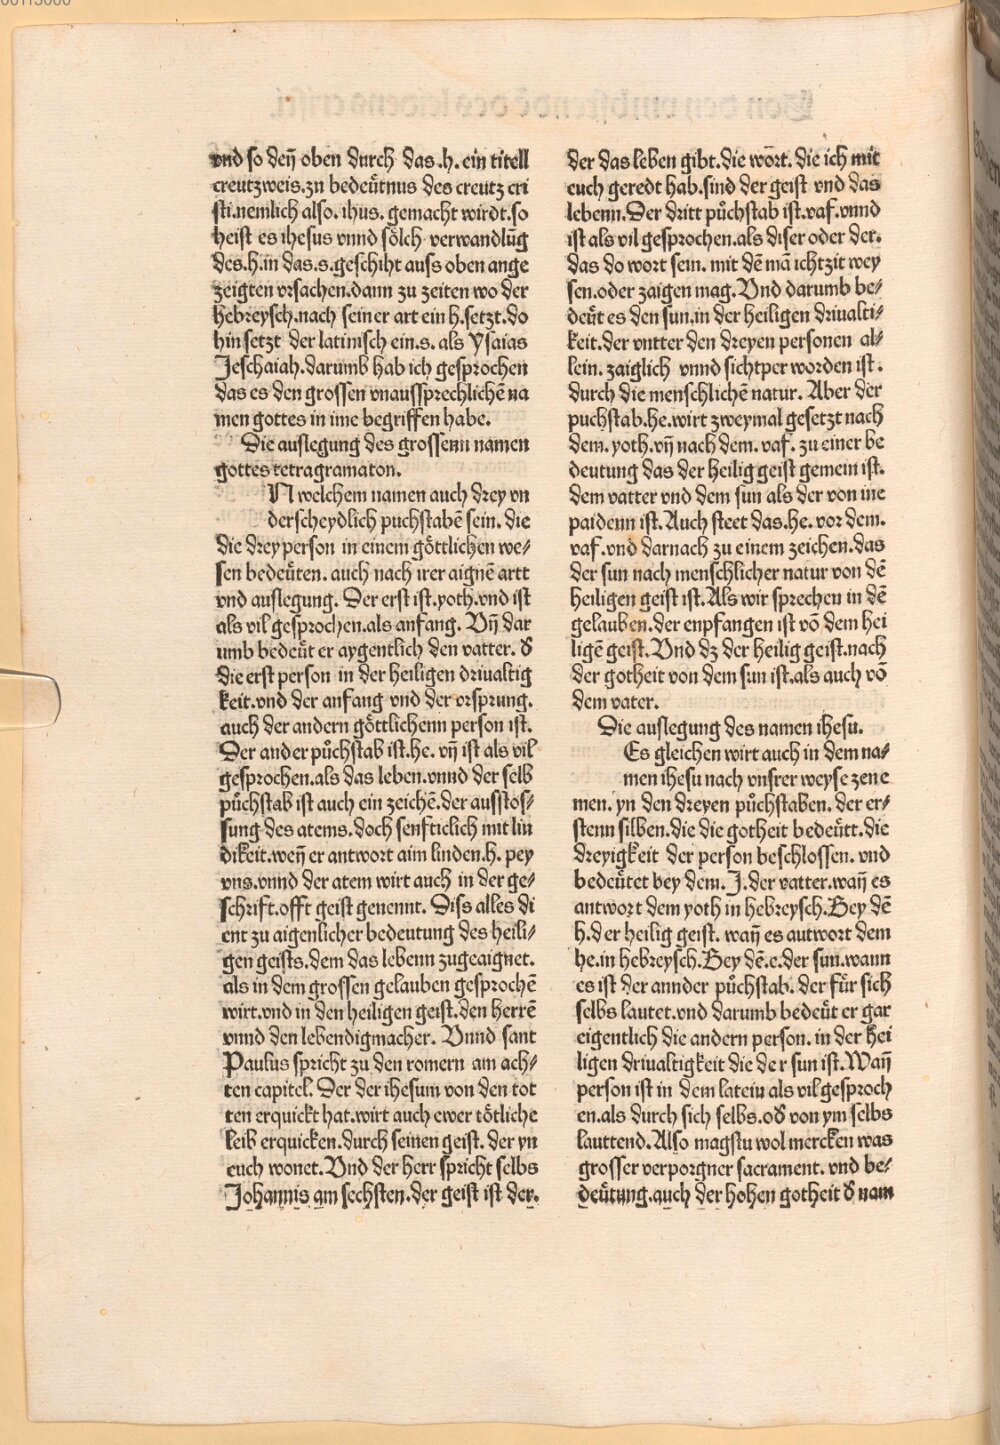 vnd so deñ oben durch das.h. ein titell
creutzweis.zu bedeu̇tnus des creutz cri
sti.nemlich also. ihus. gemacht wirdt.so
heist es ihesus vnnd soͤlch verwandlūg
des.h.in das.s.geschiht auss oben ange
zeigten vrsachen.dann zu zeiten wo der
hebreysch.nach seiner art ein h.setzt.do
hin setzt der latinisch ein.s. als Ysaias
Jeschaiah.darumb hab ich gesprochen
das es den grossen vnaussprechlichē na
men gottes in ime begriffen habe.
Die auslegung des grossenn namen
gottes tetragramaton.
N welchem namen auch drey vn
derscheydlich puchstabē sein. die
die drey person in einem goͤttlichen we⸗
sen bedeuͤten. auch nach irer aignē artt
vnd auslegung. Der erst ist.yoth.vnd ist
als vil gesprochen.als anfang. Vñ dar
umb bedeuͤt er aygentlich den vatter. ď
die erst person in der heiligen driualtig
keit.vnd der anfang vnd der vrsprung.
auch der andern goͤttlichenn person ist.
Der ander puͤchstab ist.he. vñ ist als vil
gesprochen.als das leben.vnnd der selb
puͤchstab ist auch ein zeichē.der ausstos⸗
sung des atems.doch senfticlich mit lin
dikeit.weñ er antwort aim linden.h. pey
vns.vnnd der atem wirt auch in der ge⸗
schrift.offt geist genennt. Diss alles di
ent zu aigenlicher bedeutung des heili⸗
gen geists.dem das lebenn zugeaignet.
als in dem grossen gelauben gesprochē
wirt.vnd in den heiligen geist.den herrē
vnnd den lebendigmacher. Vnnd sant
Paulus spricht zu den romern am ach⸗
ten capitel. Der der ihesum von den tot
ten erquickt hat.wirt auch ewer toͤtliche
leib erquicken.durch seinen geist. der yn
euch wonet.Vnd der herr spricht selbs
Johannis am sechsten.der geist ist der.
der das leben gibt.die woͤrt. die ich mit
euch geredt hab.sind der geist vnd das
lebenn.Der dritt puͤchstab ist.vaf.vnnd
ist als vil gesprochen.als diser oder der.
das do wort sein. mit dē mā ichtzit wey
sen.oder zaigen mag. Vnd darumb be⸗
deuͤt es den sun.in der heiligen driualti⸗
keit.der vntter den dreyen personen al⸗
lein. zaiglich vnnd sichtper worden ist.
durch die menschlichē natur. Aber der
puchstab.he.wirt zweymal gesetzt nach
dem. yoth.vñ nach dem. vaf. zu einer be
deutung das der heilig geist gemein ist.
dem vatter vnd dem sun als der von ine
paidenn ist. Auch steet das.he. vor dem.
vaf.vnd darnach zu einem zeichen.das
der sun nach menschlicher natur von dē
heiligen geist ist.Als wir sprechen in dē
gelauben.der enpfangen ist vō dem hei
ligē geist.Vnd dz der heilig geist.nach
der gotheit von dem sun ist.als auch vō
dem vater.
Die auslegung des namen ihesu.
Es gleichen wirt auch in dem na⸗
men ihesu nach vnsrer weyse zene
men. yn den dreyen puͤchstaben. der er⸗
stenn silben.die die gotheit bedeuͤtt.die
dreyigkeit der person beschlossen. vnd
bedeuͤtet bey dem. J.der vatter.wañ es
antwort dem yoth in hebreysch.Bey dē
h.der heilig geist. wañ es autwort dem
he.in hebreysch.Bey dē.e.der sun.wann
es ist der annder puͤchstab. der fuͤr sich
selbs lautet.vnd darumb bedeuͤt er gar
eigentlich die andern person. in der hei
ligen driualtigkeit die der sun ist.Wañ
person ist in dem lateiu als vil gesproch
en.als durch sich selbs.oď von ym selbs
lauttend.Also magstu wol mercken was
grosser verporgner sacrament. vnd be⸗
deuͤtung.auch der hohen gotheit ď nam